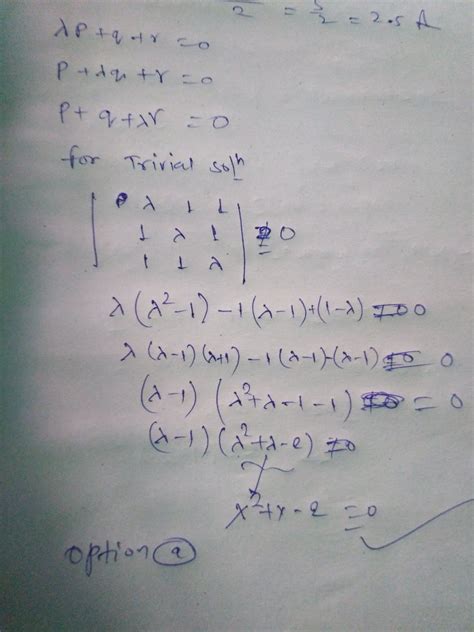 2 = 5/2 = 2.5 A
λP + q + r = 0
P + λq + r = 0
P + q + λr = 0
for Trivial solⁿ
| λ 1 1 |
| 1 λ 1 | = 0
| 1 1 λ |
λ(λ²-1) -1(λ-1)+(1-λ) = 0
λ(λ-1)(λ+1) -1(λ-1)-(λ-1) = 0
(λ-1) (λ²+λ-1-1) = 0
(λ-1) (λ²+λ-2) = 0
λ²+λ-2 = 0
option (a)